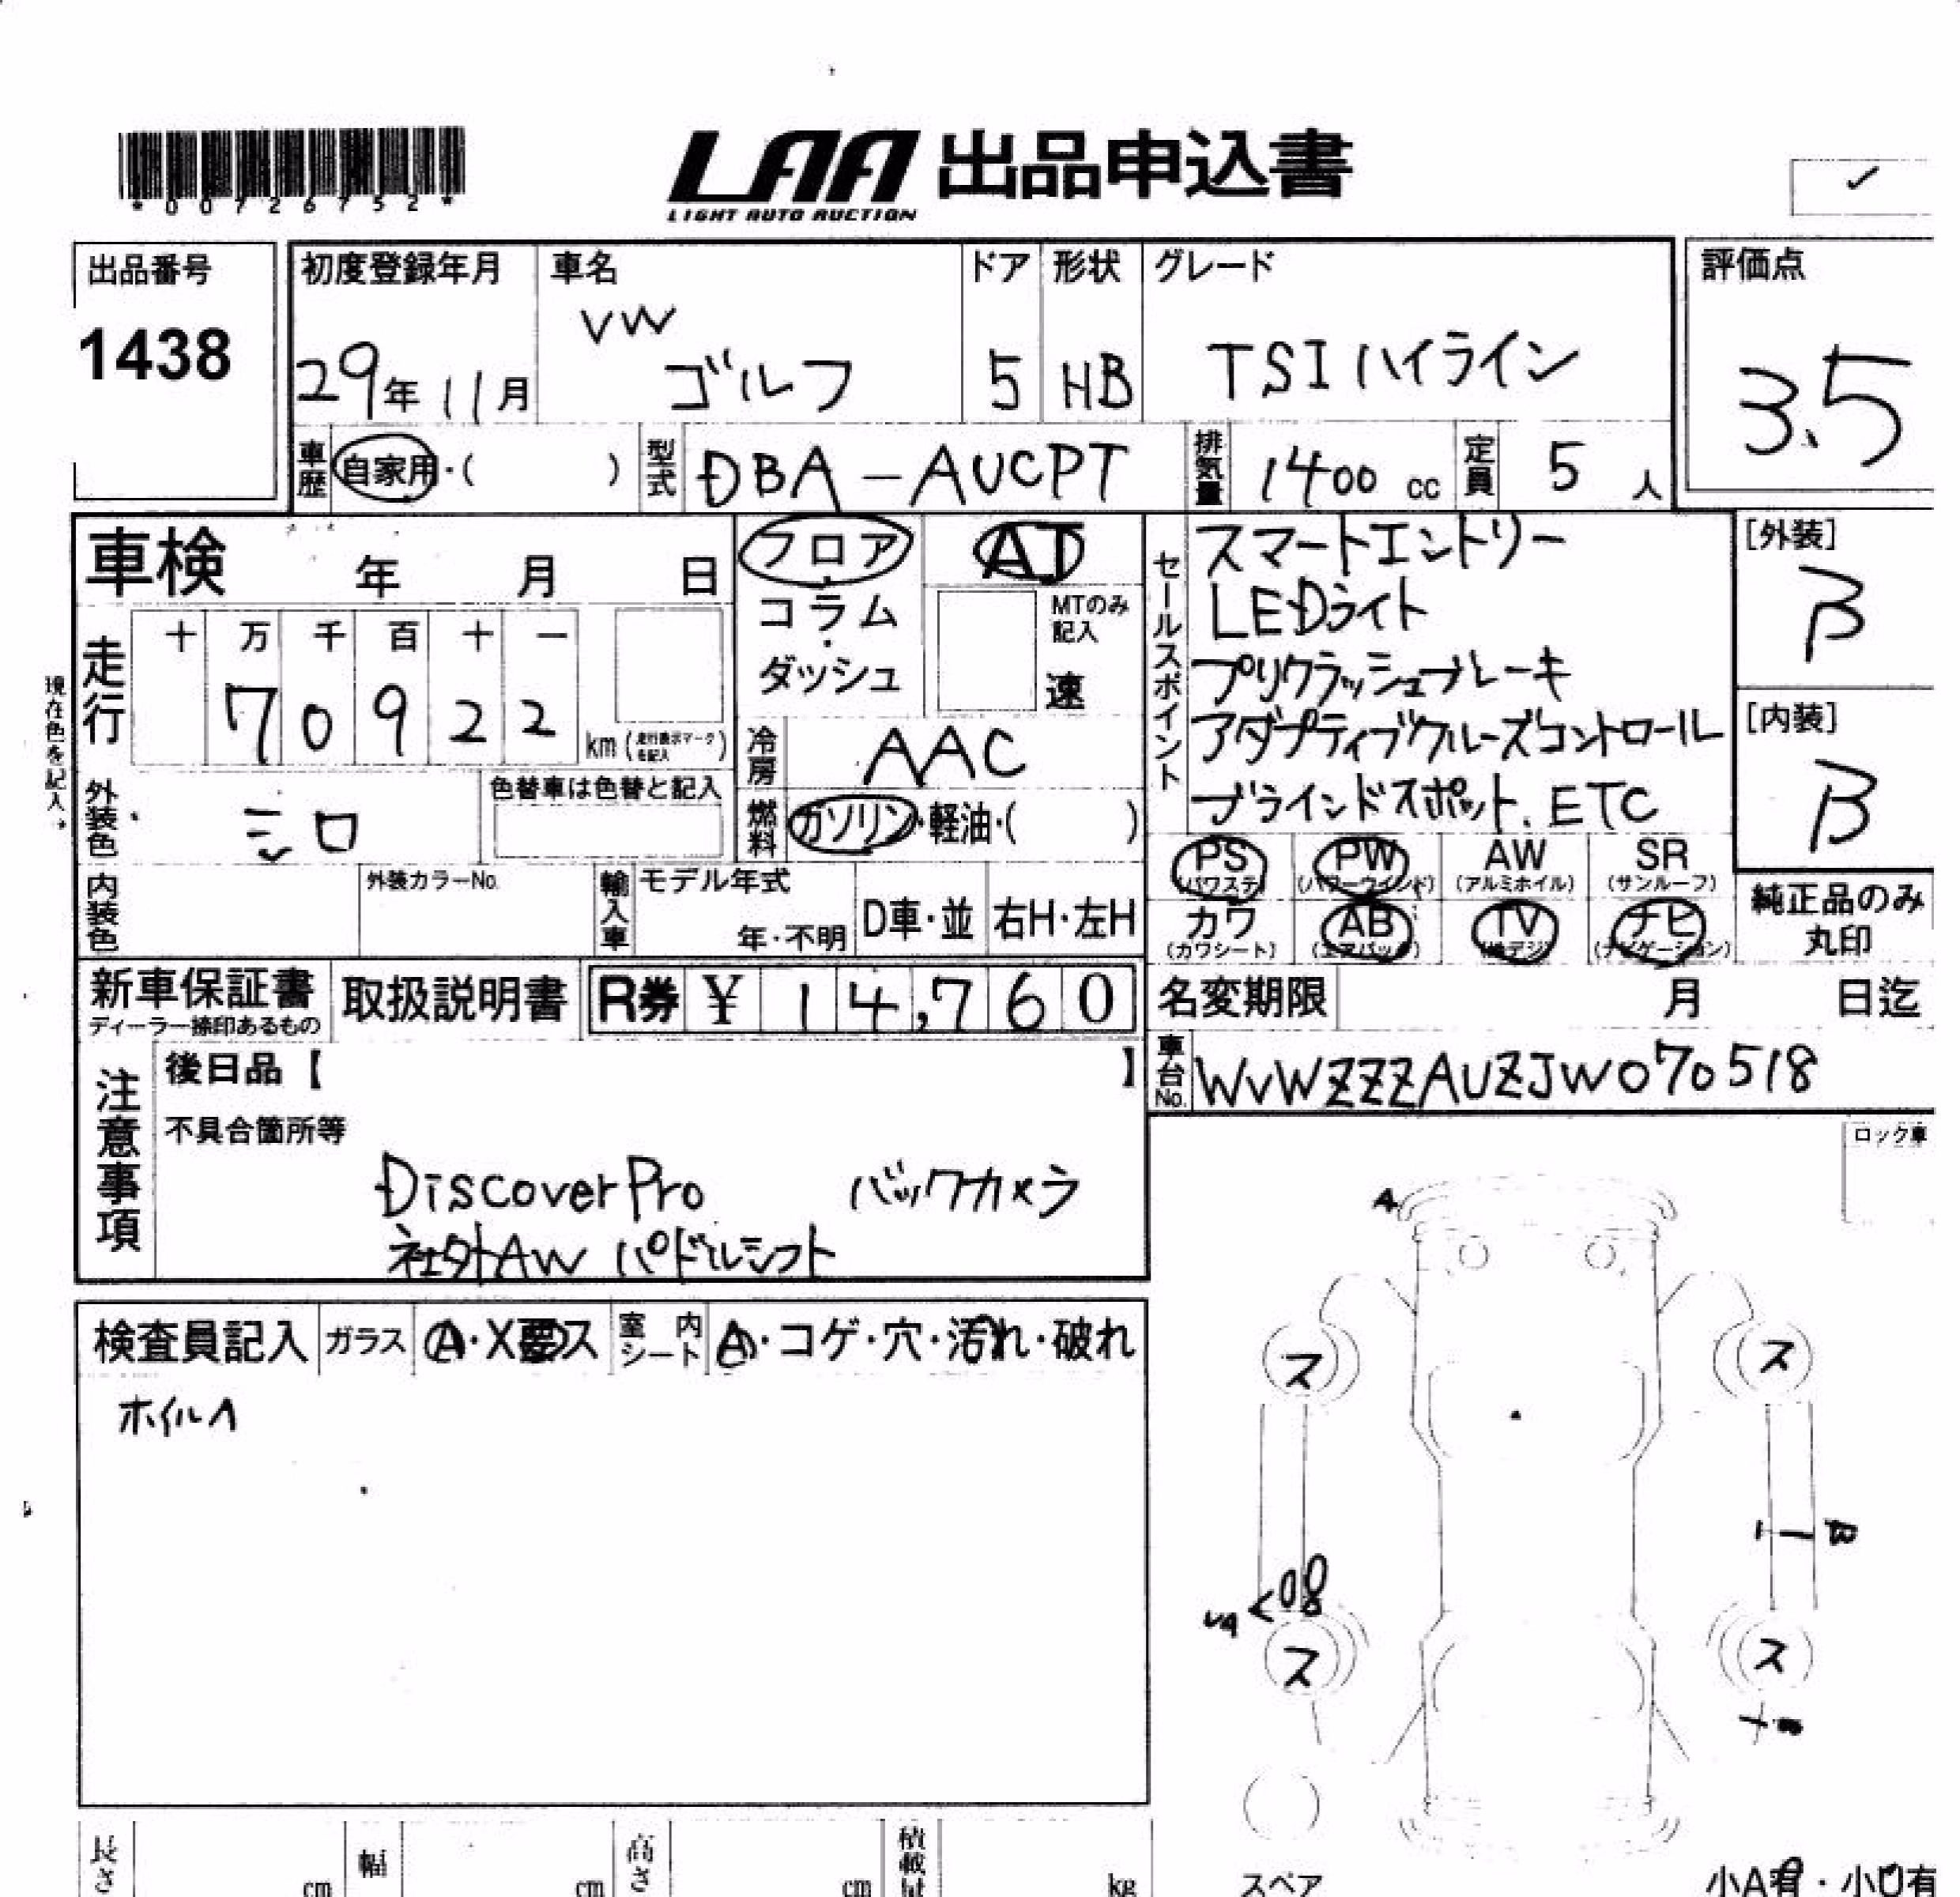 *00726752*
LAA 出品申込書
LIGHT AUTO AUCTION
✓
出品番号
1438
初度登録年月
29年11月
車名
VW
ゴルフ
ドア
5
形状
HB
グレード
TSIハイライン
評価点
3.5
車歴
自家用・( )
型式
DBA-AUCPT
排気量
1400 cc
定員
5 人
車検 年 月 日
フロア
コラム
・
ダッシュ
AT
MTのみ
記入
速
走行
十 万 千 百 十 一
7 0 9 2 2
km (走行表示マークを記入)
現在色を記入。
冷房
AAC
外装色
シロ
色替車は色替と記入
燃料
ガソリン・軽油・( )
内装色
外装カラーNo.
輸入車
モデル年式
年・不明
D車・並
右H・左H
セールスポイント
スマートエントリー
LEDライト
プリクラッシュブレーキ
アダプティブクルーズコントロール
ブラインドスポット、ETC
[外装]
B
[内装]
B
PS
(パワステ)
PW
(パワーウインド)
AW
(アルミホイル)
SR
(サンルーフ)
カワ
(カワシート)
AB
(エアバック)
TV
(地デジ)
ナビ
(ナビゲーション)
純正品のみ
丸印
新車保証書
ディーラー捺印あるもの
取扱説明書
R券 ¥ 14,760
名変期限 月 日迄
車台No.
WVWZZZAUZJW070518
注意事項
後日品【 】
不具合箇所等
DiscoverPro バックカメラ
社外AW パドルシフト
ロック車
検査員記入
ガラス
A・X要ス
室内
シート
A・コゲ・穴・汚れ・破れ
ホイルA
A
ス
ス
ス
ス
スペア
小A有・小U有
長さ cm
幅 cm
高さ cm
積載 kg